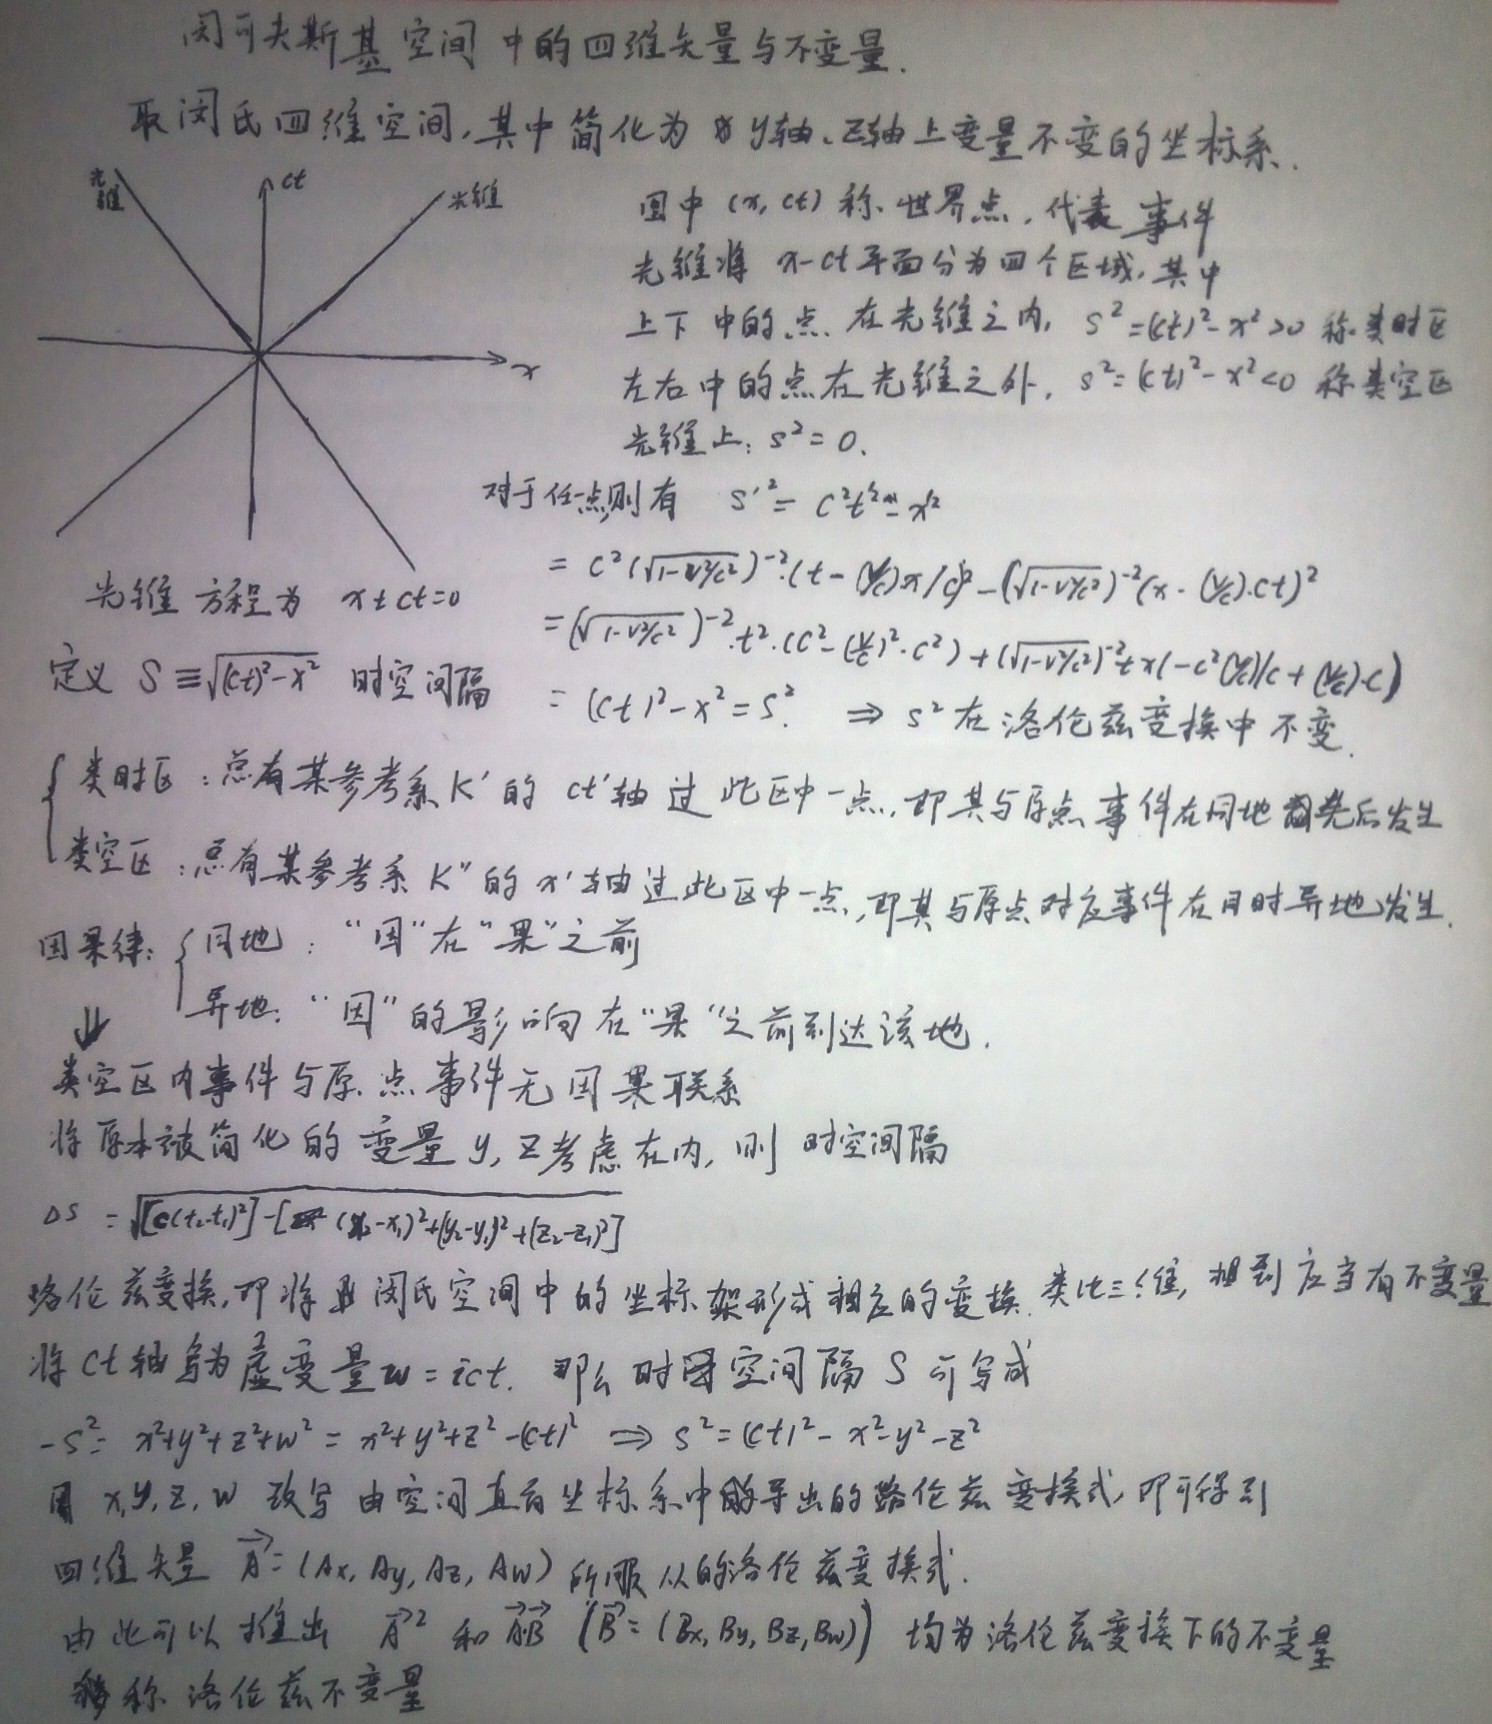 闵可夫斯基空间中的四维矢量与不变量.
取闵氏四维空间,其中简化为 y轴、z轴上变量不变的坐标系.
光锥
ct
光锥
x
图中 (x, ct) 称世界点, 代表事件
光锥将 x-ct平面分为四个区域, 其中
上下中的点在光锥之内, S²=(ct)²-x²>0 称类时区
左右中的点在光锥之外, S²=(ct)²-x²<0 称类空区
光锥上: S²=0.
对于任一点则有 S'²= c²t'²-x'²
= c²(√(1-v²/c²))⁻²·(t-(v/c)x/c)²-(√(1-v²/c²))⁻²(x-(v/c)·ct)²
=(√(1-v²/c²))⁻²·t²·(c²-(v/c)²·c²)+(√(1-v²/c²))⁻²tx(-c²(v/c)/c+(v/c)·c)
= (ct)²-x²=S². ⇒ S²在洛伦兹变换中不变.
光锥方程为 x±ct=0
定义 S≡√((ct)²-x²) 时空间隔
类时区:总有某参考系K'的 ct'轴过此区中一点, 即其与原点事件在同地先后发生
类空区:总有某参考系K''的x'轴过此区中一点, 即其与原点对应事件在同时异地发生.
因果律: 同地: “因”在“果”之前
异地: “因”的影响在“果”之前到达该地.
⇓
类空区内事件与原点事件无因果联系
将原本被简化的变量y, z考虑在内, 则时空间隔
ΔS =√([c(t₂-t₁)²]-[(x₂-x₁)²+(y₂-y₁)²+(z₂-z₁)²])
洛伦兹变换,即将闵氏空间中的坐标架形成相应的变换. 类比三维, 想到应当有不变量
将ct轴写为虚变量w=ict. 那么时空间隔S可写成
-S²= x²+y²+z²+w²= x²+y²+z²-(ct)² ⇒ S²=(ct)²-x²-y²-z²
用 x,y,z,w 改写由空间直角坐标系中所导出的洛伦兹变换式, 即可得到
四维矢量 A⃗=(Ax, Ay, Az, Aw) 所服从的洛伦兹变换式.
由此可以推出 A⃗² 和 A⃗·B⃗ (B⃗=(Bx, By, Bz, Bw)) 均为洛伦兹变换下的不变量
称洛伦兹不变量